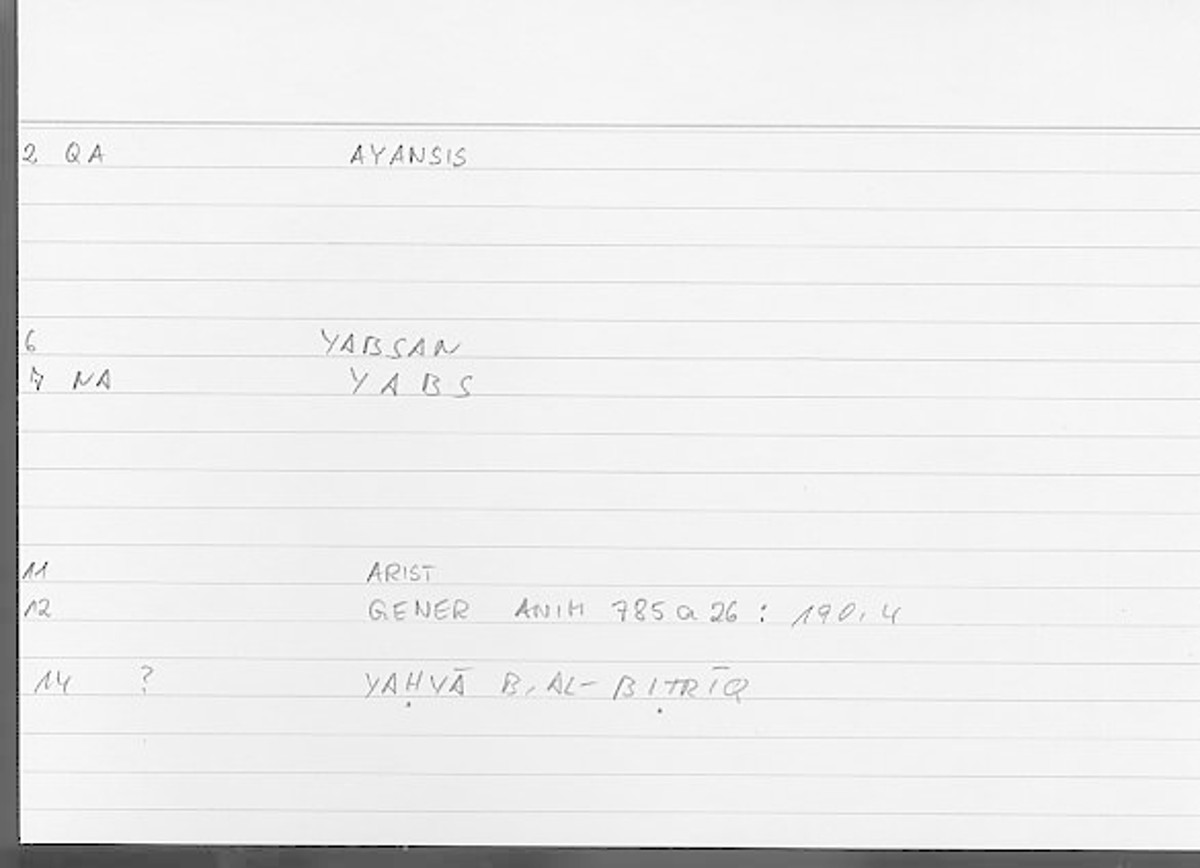 2 QA AYANSIS
6 YABSAN
7 NA YABS
11 ARIST
12 GENER ANIM 785 a 26 : 190,4
14 ? YAḤYĀ B, AL-BIṬRĪQ